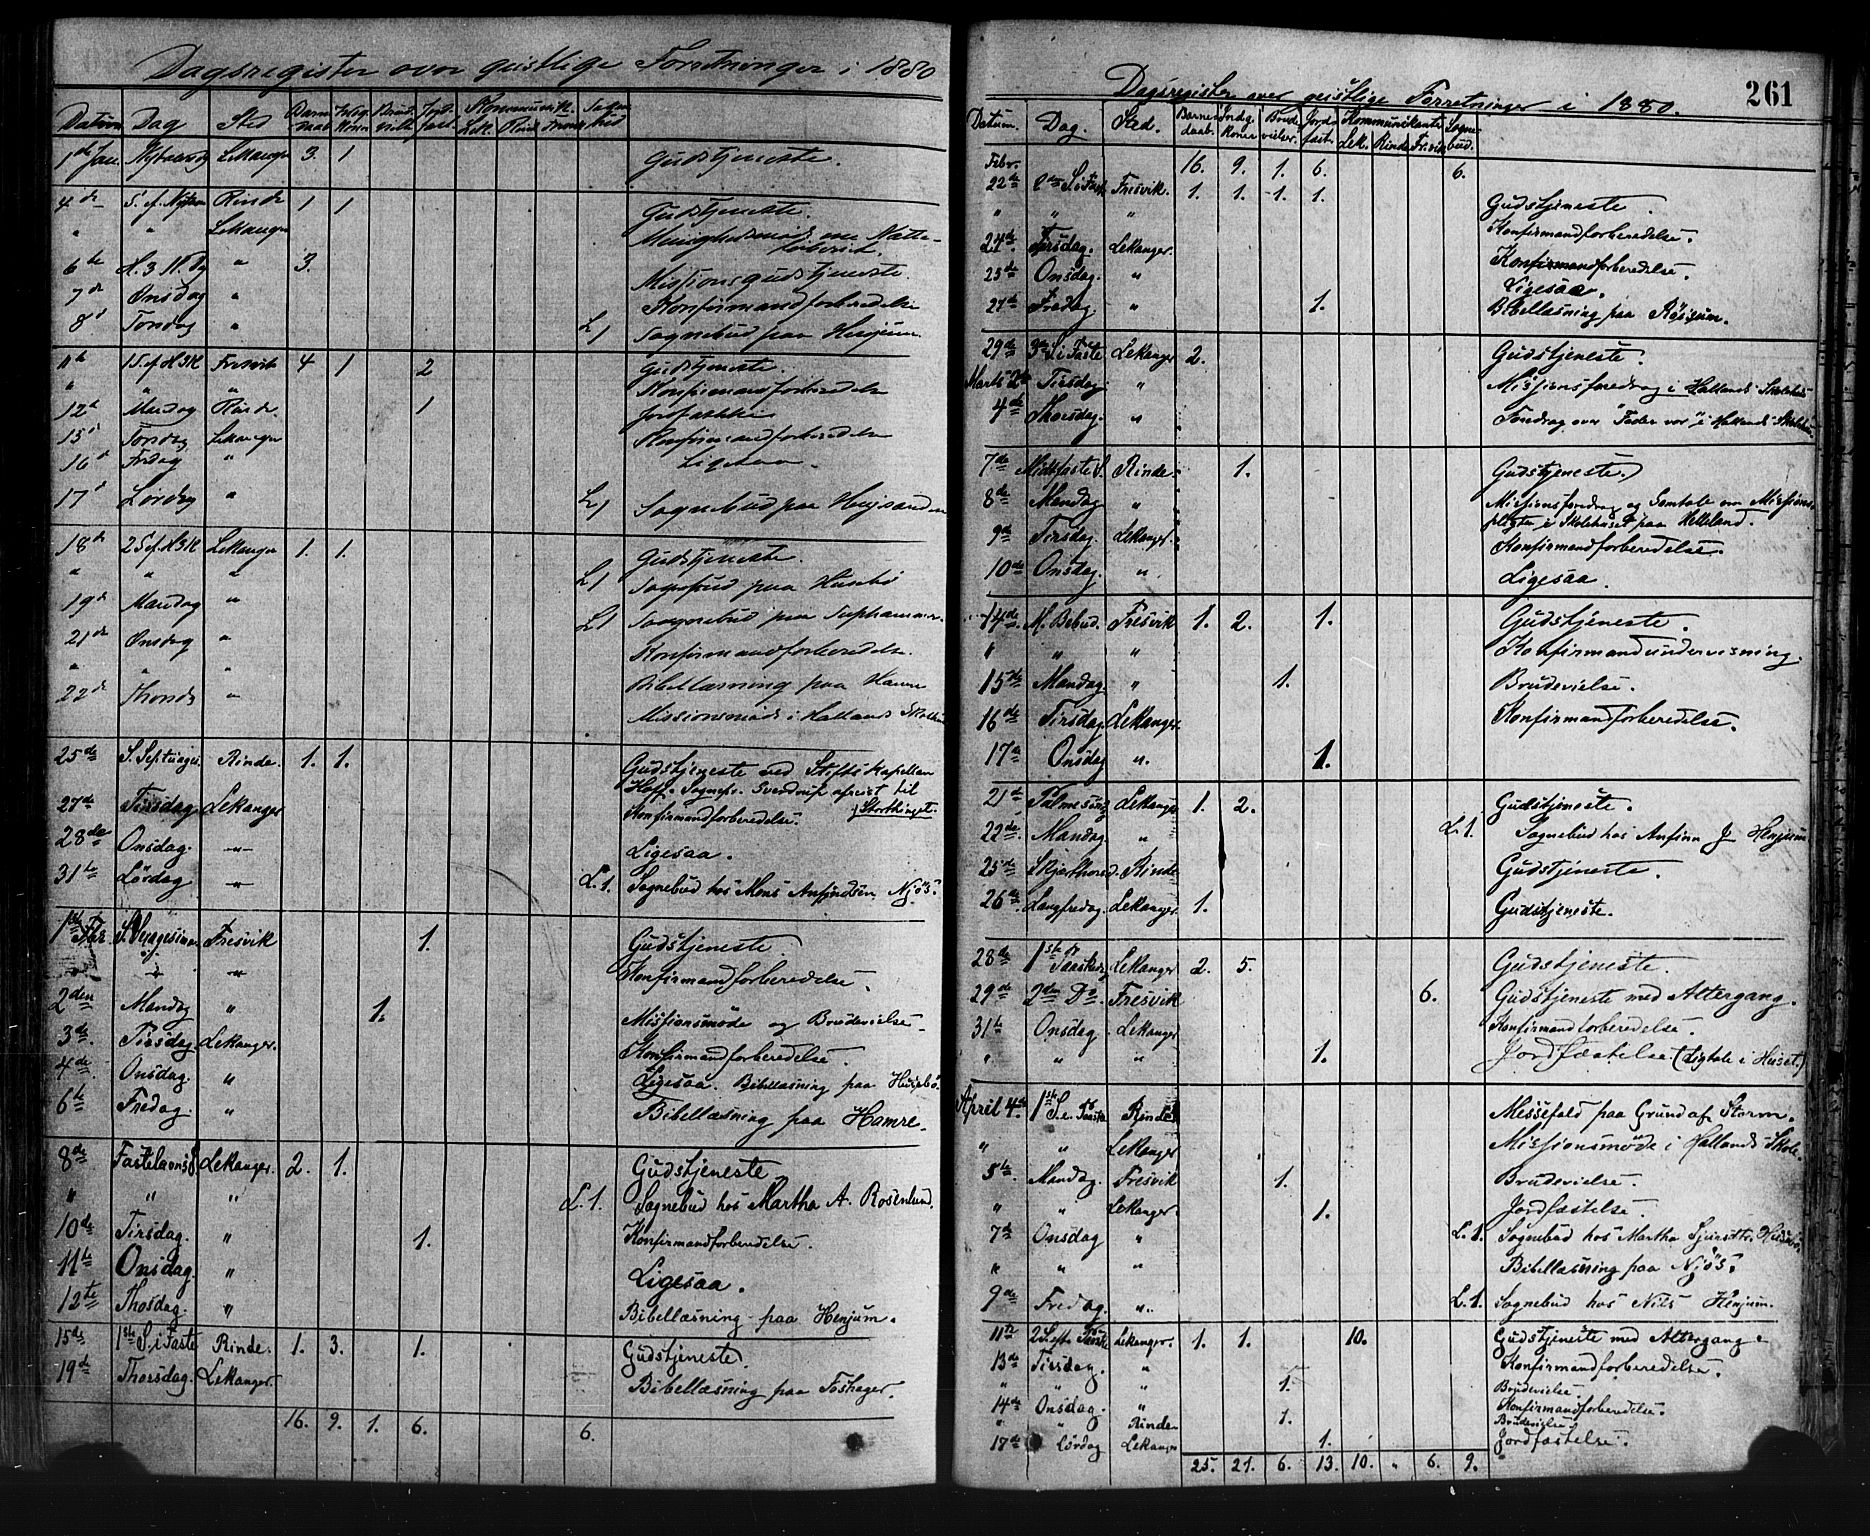 Dagsregister over geistlige Forretninger i 1880
Datum Dag Sted Barnedaab Indg. Kone Brudevielse Jordfæst Kommunik. Lek. Rinde Sognebud
1ste Jan. Nytaarsdg Lekanger 3. 1 Gudstjeneste.
4de S. ef. Nytaar Rinde 1 1 Gudstjeneste.
" " Lekanger
6te H. 3 K. Dg " 3. Missionsgudstjeneste.
7de Onsdag " Konfirmandforberedelse
8d Torsdag " L1 Sognebud paa Henjum
11te 1 S. ef. H3K Fresvik 4 1 2 Gudstjeneste.
" " Konfirmandforberedelse
12te Mandag Rinde 1 Jordfæstelse
15d Torsdag Lekanger Konfirmandforberedelse
16d Fredag " Ligesaa.
17d Lørdag " L1 Sognebud paa Henjesanden
18de 2 S. ef. H3K Lekanger 1. 1. Gudstjeneste.
" " " L1 Sognebud paa Husebø
19d Mandag " L1 Sognebud paa
21de Onsdag " Konfirmandforberedelse.
" " Bibellæsning paa Hamre
22de Thorsd. " Missionsmøde i Hallands Skolehus
25de S. Septuages. Rinde. 1. 1. Gudstjeneste ved Stiftskapellan
Hoff. Sognepr. Sverdrup afreist til
Storthinget.
27de Tirsdag Lekanger Konfirmandforberedelse.
28de Onsdag. " Ligesaa.
31te Lørdag " L. 1. Sognebud hos Mons Anfindsen Njøs.
1ste Febr. S. Sexagesima Fresvik 1. Gudstjeneste.
" " " Konfirmandforberedelse.
2den Mandag " 1. Missionsmøde og Brudevielse.
3de Tirsdag Lekanger. Konfirmandforberedelse.
4de Onsdag. " Ligesaa. Bibellæsning paa Husebø.
6te Fredag. " Bibellæsning paa Hamre.
8de Fastelavns S. Lekanger. 2. 1. Gudstjeneste
" " " L. 1. Sognebud hos Martha A. Rosenlund.
10de Tirsdag. " 1. Konfirmandforberedelse.
11te Onsdag. " Ligesaa.
12te Thosdag. " Bibellæsning paa Henjum.
15de 1ste S. i Faste Rinde. 1. 3. 1. Gudstjeneste.
19de Thorsdag. Lekanger. Bibellæsning paa Foshager.
16. 9. 1. 6. 6.
261
Dagsregister over geistlige Forretninger i 1880.
Datum. Dag. Sted. Barnedaab. Indg. koner Brudevielser. Jordfæst. Kommunikanter Lek. Rinde Fresvik Sognebud.
Febr. 16. 9. 1. 6. 6.
22de 2den S. i Faste Fresvik. 1. 1. 1. 1. Gudstjeneste.
" " " Konfirmandforberedelse.
24de Tirsdag. Lekanger. Konfirmandforberedelse.
25de Onsdag. " Ligesaa.
27de Fredag. " 1. Bibellæsning paa Røisum.
29de 3die S. i Faste Lekanger 2. Gudstjeneste.
Marts 2den Tirsdag. " Missionsforedrag i Hallands Skolehus
4de Thorsdag. " Foredrag over "Fader vor" i Hallands Skolehus.
7de Midfaste S. Rinde. 1. Gudstjeneste.
8de Mandag " Missionsforedrag og Samtale om Missions-
pligten i Skolehuset paa Helleland.
9de Tirsdag. Lekanger. Konfirmandforberedelse.
10de Onsdag. " Ligesaa.
14de M. Bebud. Fresvik 1. 2. 1. Gudstjeneste.
" " " Konfirmandundervisning.
15de Mandag. " 1. Brudevielse.
16de Tirsdag Lekanger. Konfirmandforberedelse.
17de Onsdag ". 1.
21de Palmesøndg Lekanger 1. 2. Gudstjeneste.
22de Mandag " L. 1. Sognebud hos Anfinn J. Henjum
25de Skjærthorsd. Rinde Gudstjeneste.
26de Langfredag. Lekanger. 1. Gudstjeneste.
28de 1ste Paaskedg Lekanger 2. 5. Gudstjeneste.
29de 2den Do. Fresvik 6. Gudstjeneste med Altergang.
31te Onsdag Lekanger Konfirmandforberedelse.
" " " 1. Jordfæstelse. (Ligtale i Huset.)
April 4de 1ste S. e. Paaske Rinde Messefald paa Grund af Storm.
" " Lekanger Missionsmøde i Hallands Skole.
5te Mandag. Fresvik 1. Brudevielse.
" " Lekanger. 1. Jordfæstelse.
7de Onsdag " L. 1. Sognebud hos Martha Sjursdtr. Husebø.
" " " Bibellæsning paa Njøs.
9de Fredag. ". L. 1. Sognebud hos Nils Henjum.
11te 2 S. efter Paaske Lekanger. 1. 1. 10. Gudstjeneste med Altergang.
13de Tirsdag. " Konfirmandforberedelse.
" " " 1. Brudevielse.
14de Onsdag. " Konfirmandforberedelse.
" " Rinde 1. Brudevielse
17de Lørdag Lekanger 1. Jordfæstelse.
25. 21. 6. 13. 10. " 6. 9.